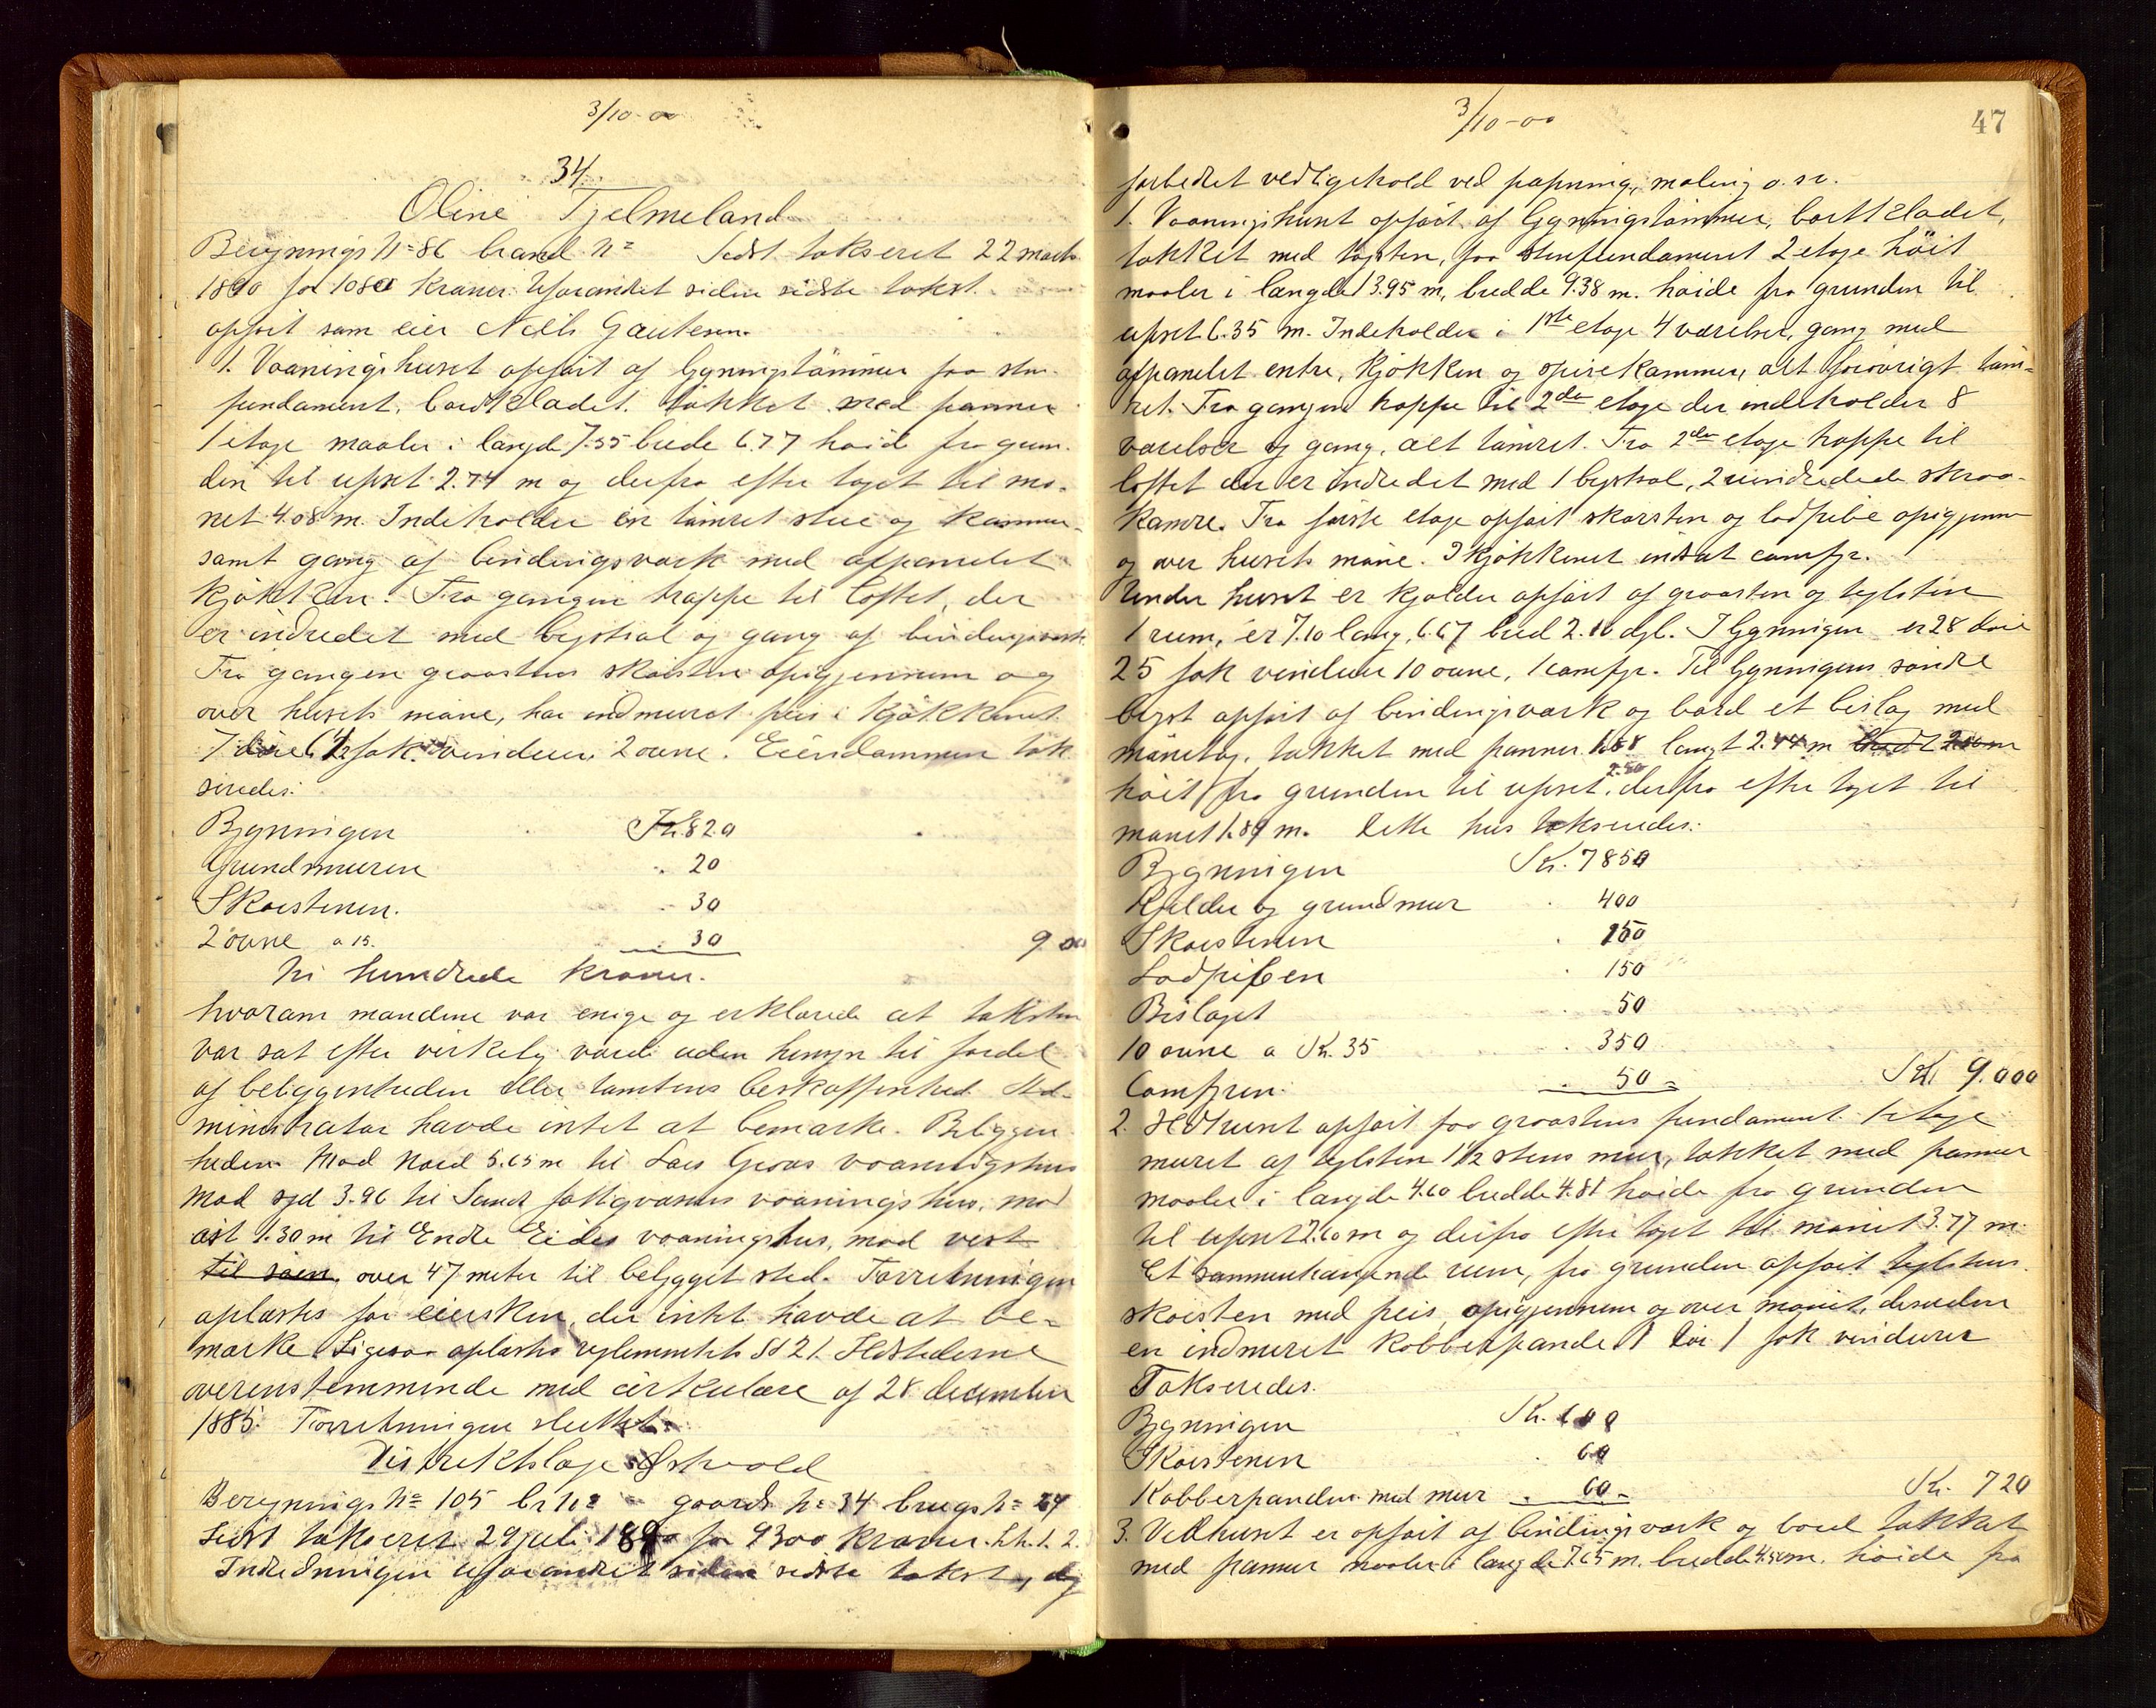 3/10-00
34.
Oline Tjelmeland
Besynings No 86 brand No Sidst takseret 22 marts
1890 for 1080 kroner. Uforandret siden sidste takst.
opført som eier Niels Gautesen.
1. Vaaningshuset opført af bygningstømmer paa sten-
fundament, bordklædet. takket med panner
1 etage maaler i længde 7.55 brede 6.77 høide fra grun-
den til upset 2.74 m og derfra efter taget til mø-
net 4.08 m. Indeholder en tømret stue og kammer
samt gang af bindingsværk med afpanelet
kjøkken. Fra gangen trappe til loftet, der
er indredet med kvistsal og gang af bindingsværk
Fra gangen graastens skorsten opigjennem og
over husets møne, har indmuret peis i kjøkkenet
7 døre 6 1/2 fak vinduer 2 ovne. Eiendommen tak
seredes:
Bygningen Kr. 820
Grundmuren " 20
Skorstenen. " 30
2 ovne a 15. " 30 900
Ni hundrede kroner.
hvorom mændene var enige og erklærede at taksten
var sat efter virkelig værdi uden hensyn til fordel
af beliggenheden eller tomtens beskaffenhed. Ad-
ministrator havde intet at bemærke. Beliggen
heden Mod Nord 5.65 m til Lars Gross vaaningshus
Mod syd 3.96 til Sand fattigvæsens vaaningshus, mod
øst 1.30 m til Endre Eides vaaningshus, mod vest
til søen, over 47 meter til bebygget sted. Forretningen
oplæstes for eiersken, der intet havde at be-
mærke. Ligesaa oplæstes reglementets §d 21. Ildstederne
overenstemmende med cirkulære af 28 december
1885. Forretningen sluttet.
Distriktslæge Østvold
Besynings No 105 br No " gaards No 34 brugs No 24
Sidst takseret 29 juli 1890 for 9300 kroner. Lh. 1. 2.
Indredningen uforandret siden sidste takst, dog
3/10-00
47
forbedret vedligehold ved papning, maling o.sv.
1. Vaaningshuset opført af bygningstømmer, bortklædet,
takket med tagsten, paa stenfundament 2 etage høit
maaler i længde 13.95 m, bredde 9.38 m. høide fra grunden til
upset 6.35 m. Indeholder i 1ste etage 4 værelser, gang med
afpanelet entre, kjøkken og spisekammer, alt forøvrigt tøm-
ret. Fra gangen trappe til 2den etage der indeholder 8
værelser og gang, alt tømret. Fra 2den etage trappe til
loftet der er indredet med 1 kvistsal, 2 uindredede skraa-
kamre. Fra første etage opført skorsten og lodpibe opigjennem
og over husets møne. I kjøkkenet indsat comfyr.
Under huset er kjælder opført af graasten og teglsten
1 rum, er 7.10 lang, 6.67 bred 2.10 dyb. I bygningen er 28 døre
25 fak vinduer 10 ovne, 1 comfyr. Til bygningens søndre
kvist opført af bindingsværk og bord et bislag med
mønetag, takket med panner 1.88 langt 2.44 m bredt 2.50 m
høit fra grunden til upset 2.50, derfra efter taget til
mønet 1.89 m. Dette hus takseredes:
Bygningen Kr. 7850
Kjelder og grundmur " 400
Skorstenen " 150
Lodpiben " 150
Bislaget " 50
10 ovne a Kr. 35 " 350
Comfyren " 50 = Kr. 9.000
2. Ildhuset opført paa graastens fundament 1 etage
muret af teglsten 1 1/2 stens mur, takket med panner
maaler i længde 4.60 bredde 4.81 høide fra grunden
til upset 2.60 m og derfra efter taget til mønet 3.77 m.
Et sammenhængende rum, fra grunden opført teglstens
skorsten med peis opigjennem og over mønet, desuden
en indmuret kobberpande 1 dør 1 fak vinduer
Takseredes.
Bygningen Kr. 600
Skorstenen " 60
Kobberpanden med mur " 60 = Kr. 720
3. Vedhuset er opført af bindingsværk og bord takket
med panner maaler i længde 7.65 m. bredde 4.50 m. høide fra